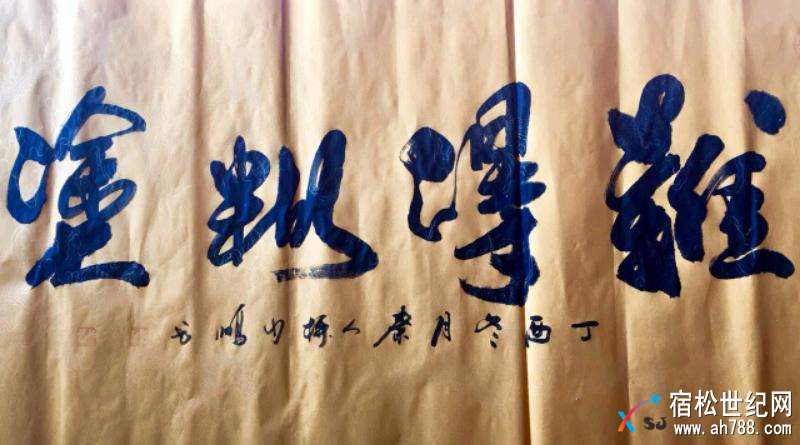 難得糊塗
丁酉冬月秦人書
SJ
宿松世纪网
www.ah788.com